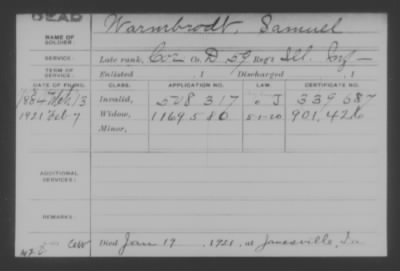 DEAD
NAME OF SOLDIER: Warmbrodt, Samuel
SERVICE: Late rank, Co. D 59 Reg't Ill. Inf
TERM OF SERVICE: Enlisted , 1 Discharged , 1
DATE OF FILING. CLASS. APPLICATION NO. LAW. CERTIFICATE NO.
1884 13 Invalid, 528 317 J 339 587
1921 Feb 7 Widow, 1169 580 5-1-20 901,426
Minor,
ADDITIONAL SERVICES:
REMARKS:
Died Jan 19, 1921, at Janesville, Ia